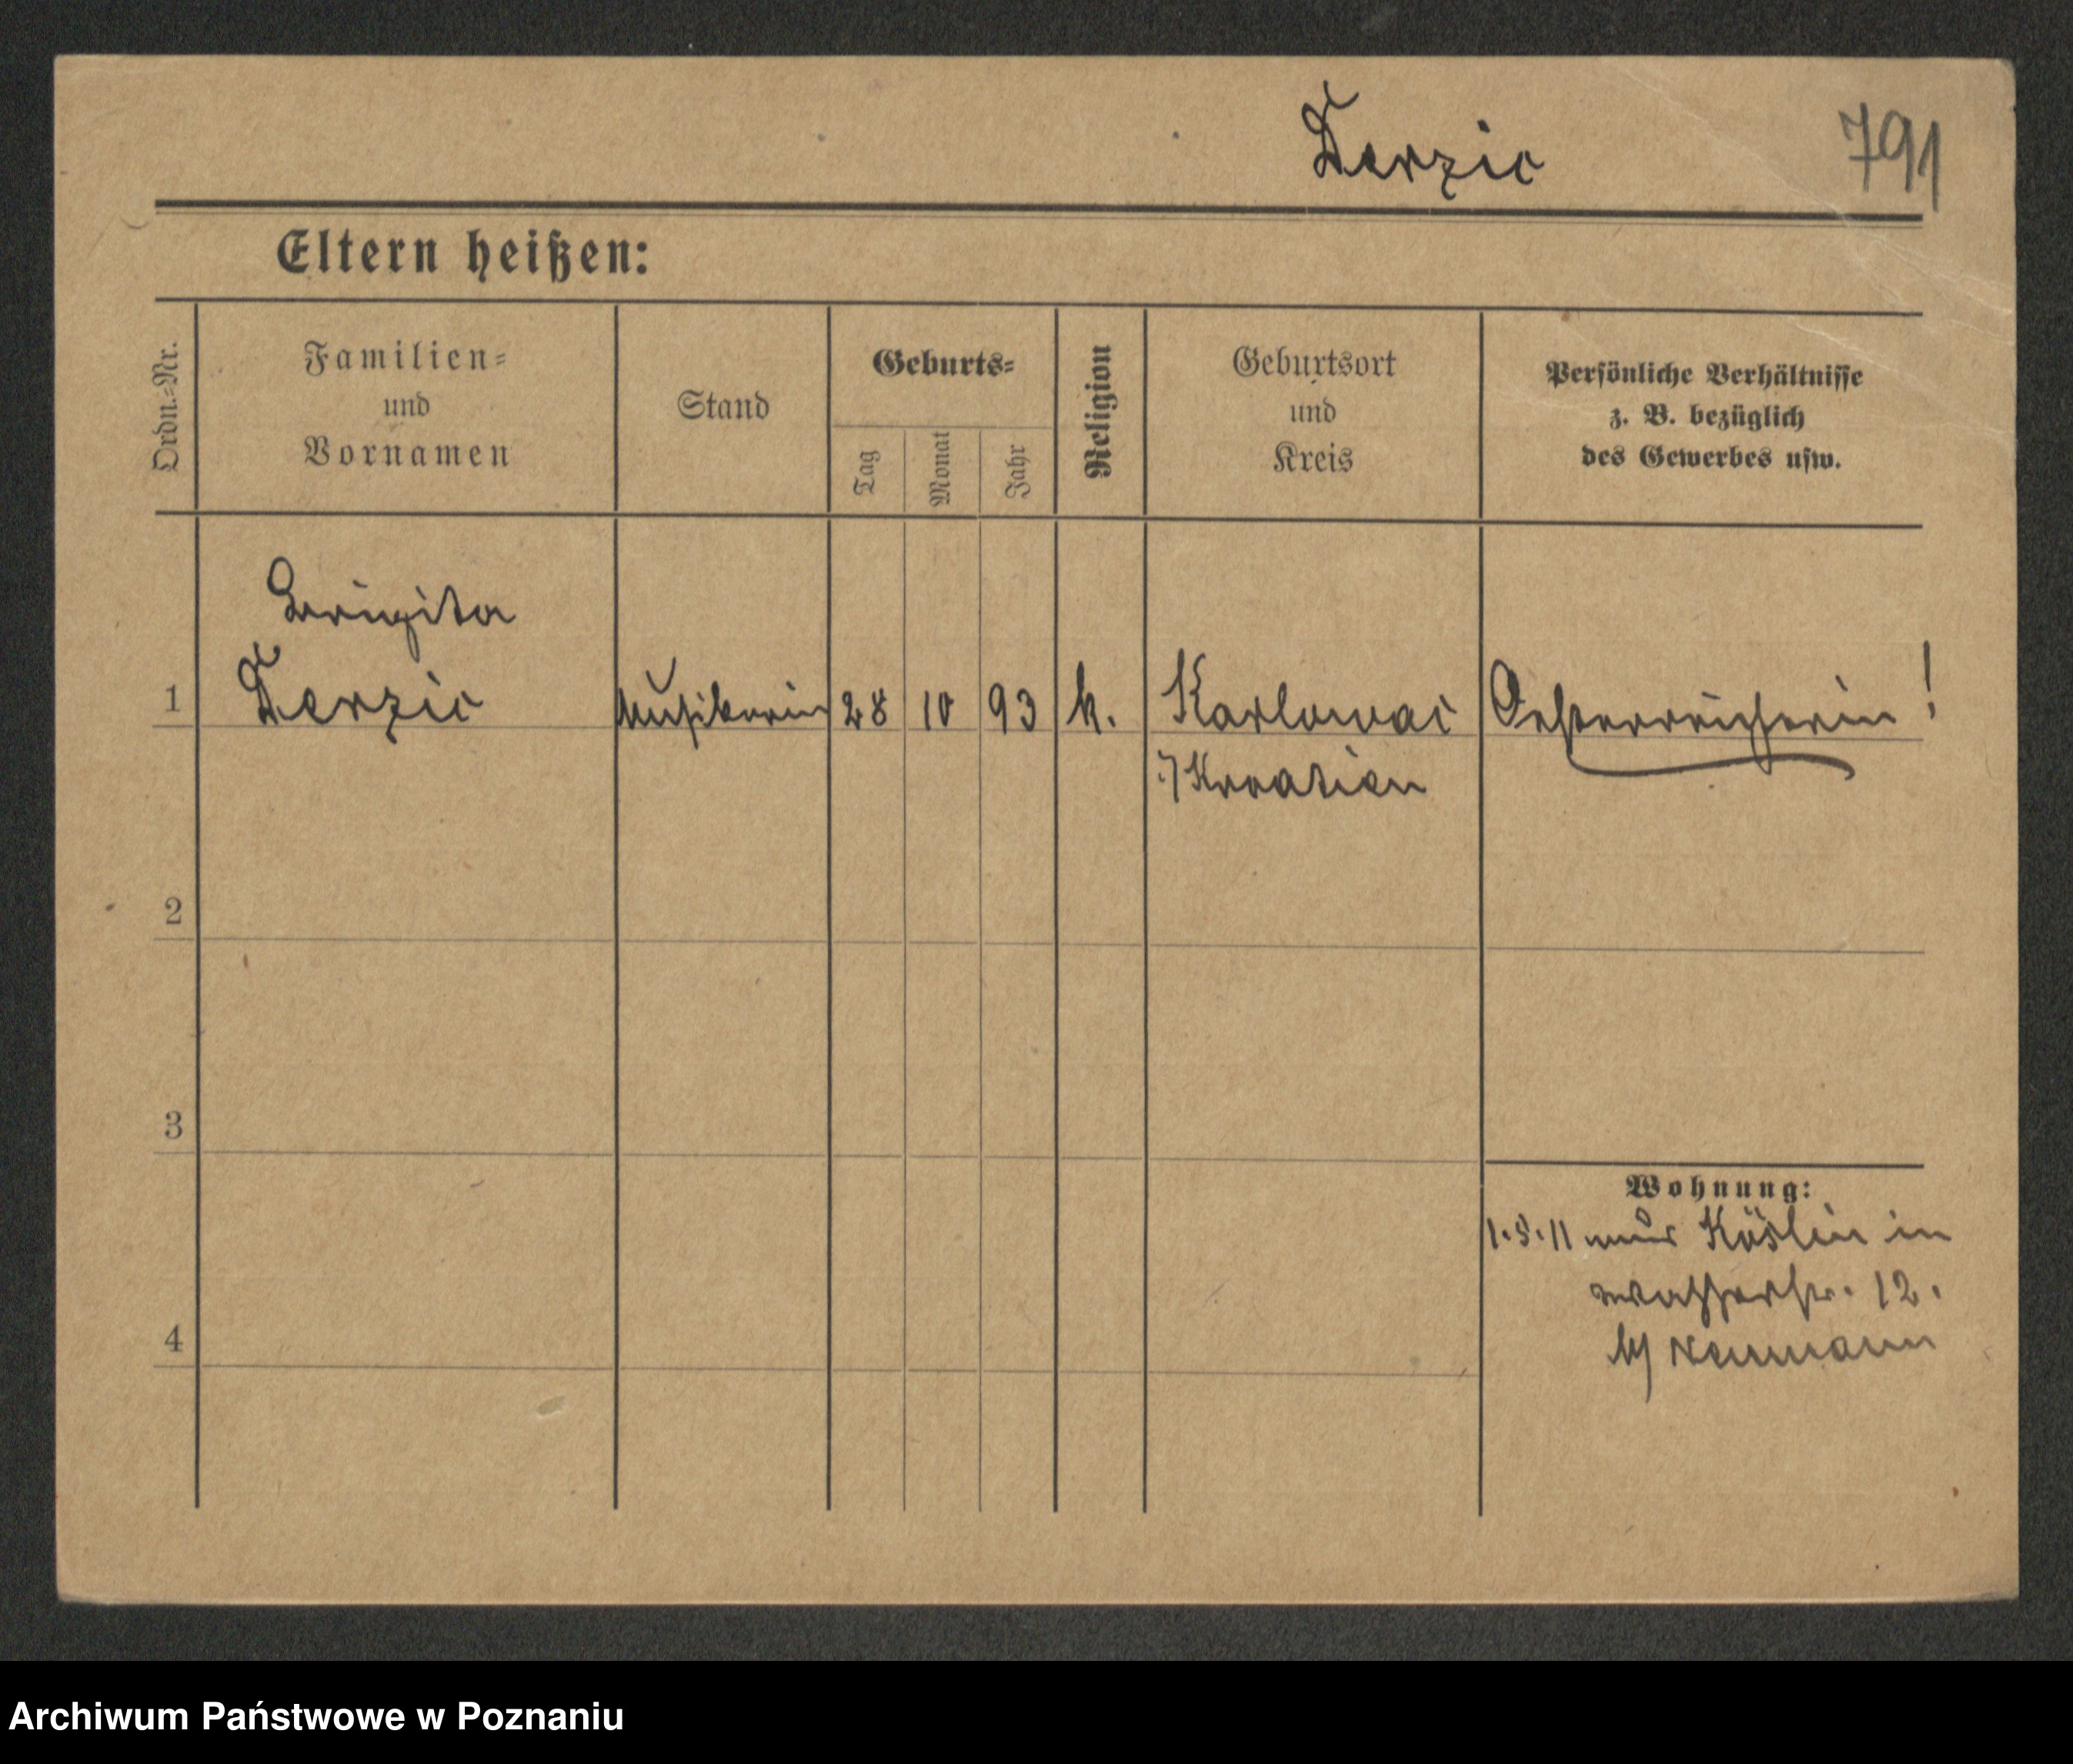 Terzic 791
Eltern heißen:
Ordn.-Nr.
Familien-
und
Vornamen
Stand
Geburts-
Tag
Monat
Jahr
Religion
Geburtsort
und
Kreis
Persönliche Verhältnisse
z. B. bezüglich
des Gewerbes usw.
Brigita
1 Terzic Musikerin 28 10 93 k. Karlowac Oesterreicherin!
i/Kroatien
2
3
4
Wohnung:
1.5.11 aus Köslin in
Wasserstr. 12.
b/ Neumann
Archiwum Państwowe w Poznaniu